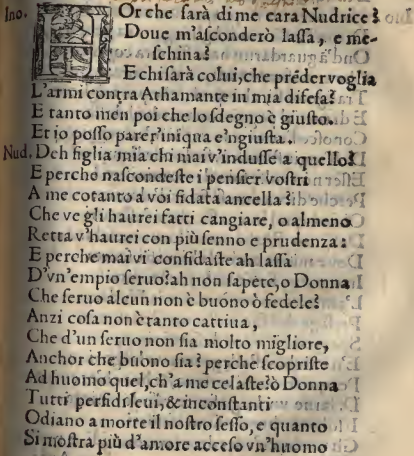 Ino. HOr che sarà di me cara Nudrice?
Doue m'asconderò lassa, e me-
schina?
E chi sarà colui, che prēder voglia
L'armi contra Athamante in mia difesa?
E tanto men poi che lo sdegno è giusto.
Et io posso parer'iniqua e'ngiusta.
Nud. Deh figlia mia chi mai v'indusse a quello?
E perche nascondeste i pensier vostri
A me cotanto a voi fidata ancella?
Che ve gli haurei fatti cangiare, o almeno
Retta v'haurei con più senno e prudenza:
E perche mai vi confidaste ah lassa
D'vn'empio seruo? ah non sapete, o Donna
Che seruo alcun non è buono ò fedele?
Anzi cosa non è tanto cattiua,
Che d'un seruo non sia molto migliore,
Anchor che buono sia? perche scopriste
Ad huomo quel, ch'a me celaste? ò Donna
Tutti perfidi, leui, & inconstanti
Odiano a morte il nostro sesso, e quanto
Si mostra più d'amore acceso vn'huomo